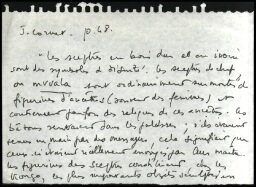 J. Cornet p. 68.
"Les sceptres en bois dur et en ivoire
sont des symboles de dignité. Les sceptres de chef
ou mvwala sont ordinairement surmontés de
figurines d'ancêtres (souvent des femmes) et
contiennent parfois des reliques de ces ancêtres. Les
bâtons dans les palabres ; s'ils étaient
tenus en main par des messagers, cela signifiait que
ceux-ci étaient réellement envoyés par leur maître.
Les figurines des sceptres constituent, chez les
Kongo, les plus importants objets